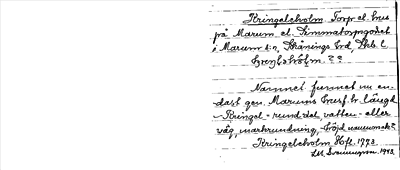 Kringelsholm. Torp el. hus
på Marum el. Simmatorpsgodset
i Marum s:n, Skånings hrd, Skb. l.
? ?
Namnet funnet nu en-
dast gen. Marums husf. br längd
Kringel - rund del, vatten - eller
väg, markrundning, höjd
Kringelsholm Hfl. 1773
1943.